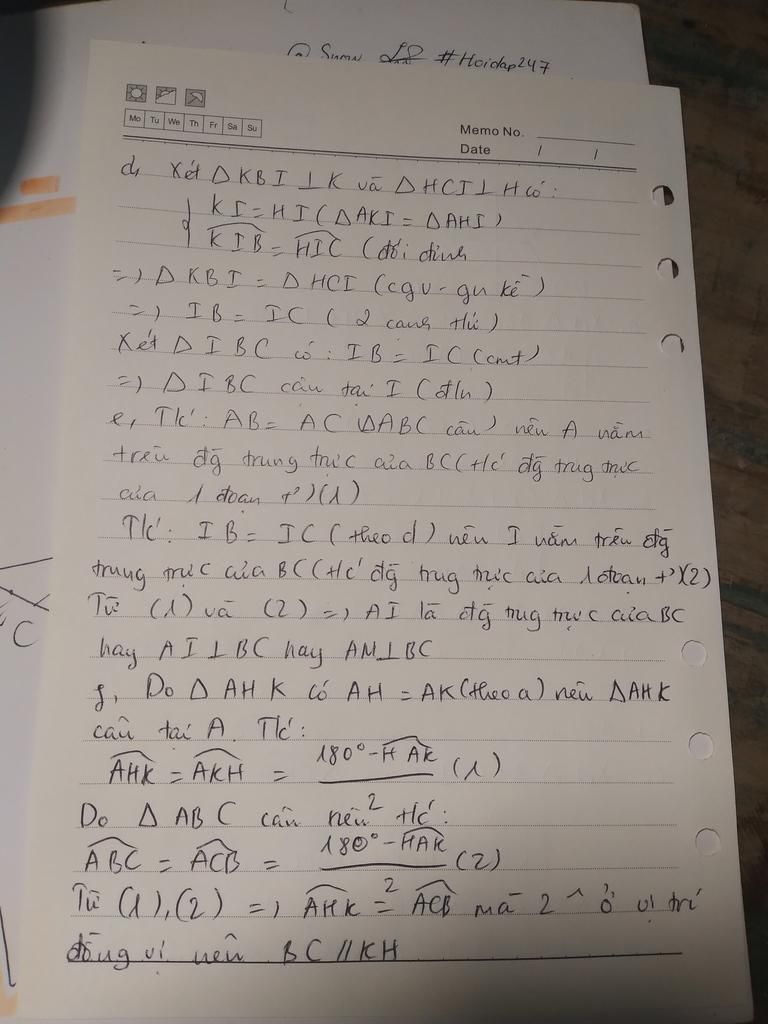 @ Sumn #Hoidap247
Mo Tu We Th Fr Sa Su
Memo No.
Date / /
d, Xét Δ KBI ⊥ K và Δ HCI ⊥ H có:
{ KI = HI (Δ AKI = Δ AHI)
KIB = HIC (đối đỉnh
=> Δ KBI = Δ HCI (cgv - gn kề)
=> IB = IC (2 cạnh tứ)
Xét Δ IBC có: IB = IC (cmt)
=> Δ IBC cân tại I (đ/n)
e, T/c: AB = AC (ΔABC cân) nên A nằm
trên đg trung trực của BC (t/c đg trug trực
của 1 đoạn t')(1)
T/c: IB = IC (theo d) nên I nằm trên đg
trung trực của BC (t/c đg trug trực của 1 đoạn t')(2)
Từ (1) và (2) => AI là đg trug trực của BC
hay AI ⊥ BC hay AM ⊥ BC
C
f, Do Δ AHK có AH = AK (theo a) nên Δ AHK
cân tại A. T/c:
AHK = AKH = 180° - HAK / 2 (1)
Do Δ ABC cân nên t/c:
ABC = ACB = 180° - HAK / 2 (2)
Từ (1), (2) => AHK = ACB mà 2 ^ ở vị trí
đồng vị nên BC // KH